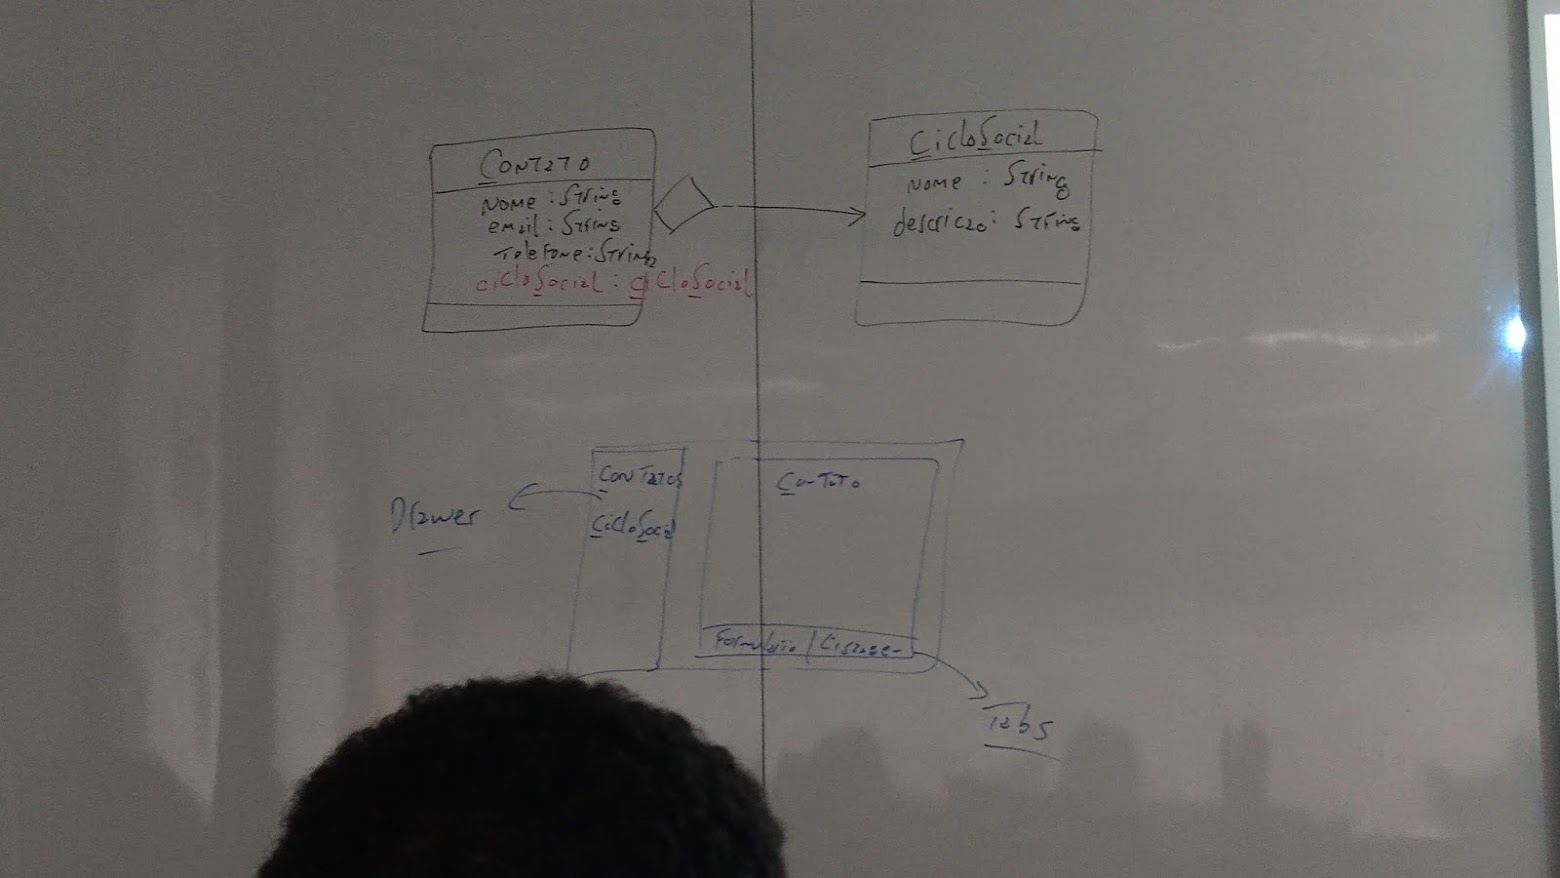 Contato
nome : String
email : String
Telefone : String
cicloSocial : CicloSocial
CicloSocial
nome : String
descricao : String
Contatos
CicloSocial
Drawer
Contato
Formulário | Listagem
Tabs